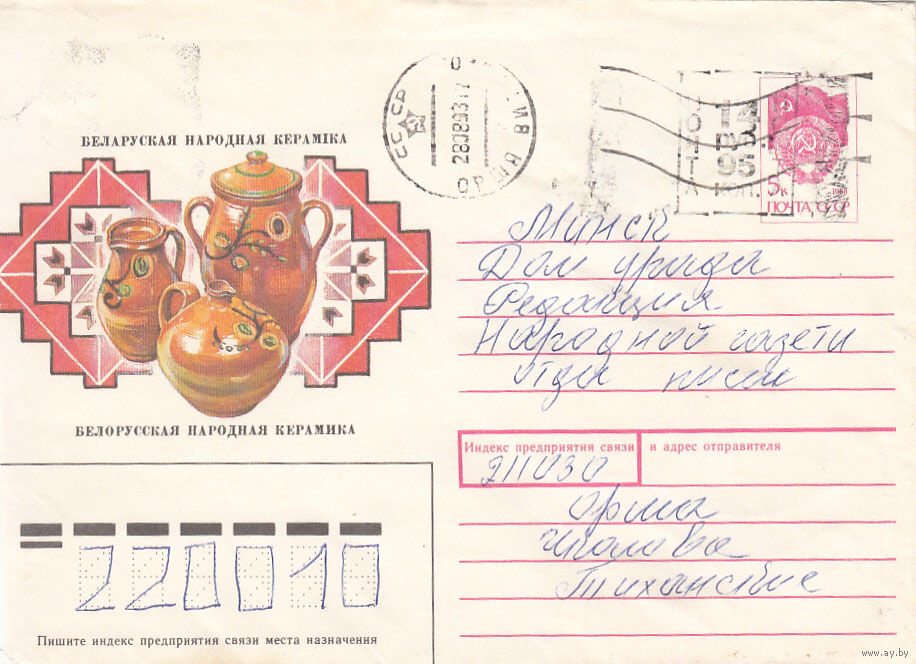 БЕЛАРУСКАЯ НАРОДНАЯ КЕРАМІКА
БЕЛОРУССКАЯ НАРОДНАЯ КЕРАМИКА
СССР
5к
ПОЧТА СССР
Минск
Дом урада
Редакция
Народной газети
отдел писем
Индекс предприятия связи и адрес отправителя
211030
Орша
220010
Пишите индекс предприятия связи места назначения
www.ay.by